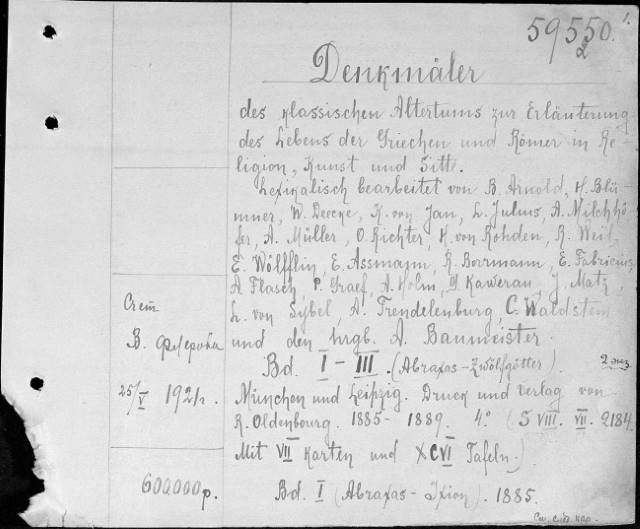 59550. 1.
Denkmäler
des klassischen Altertums zur Erläuterung
des Lebens der Griechen und Römer in Re-
ligion, Kunst und Sitte.
Lexikalisch bearbeitet von B. Arnold, H. Blü-
mner, W. Deecke, K. von Jan, L. Julius, A. Milchhö-
fer, A. Müller, O. Richter, H. von Rohden, R. Weil,
E. Wölfflin, E. Assmann, R. Borrmann, E. Fabricius,
A Flasch, P. Graef, A. Holm, G. Kawerau, J. Matz,
L. von Sybel, A. Trendelenburg, C. Waldstein
und den hrgb. A. Baumeister.
Bd. I – III. (Abraxas-Zwölfgötter). 2 экз
München und Leipzig. Druck und verlag von
R. Oldenbourg. 1885- 1889. 4.° (S VIII. VII. 2184.
Mit VII Karten und XCVI Tafeln.)
Bd. I (Abraxas- Ixion). 1885.
Счет
В. Флерова
25/V 1921г.
600,000р.